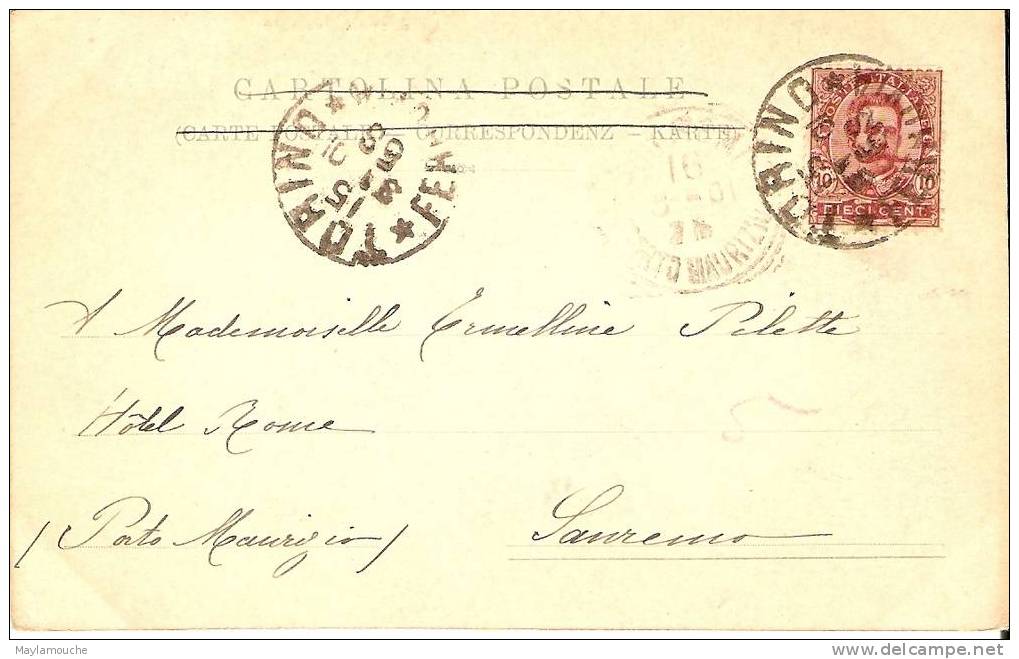 CARTOLINA POSTALE
(CARTE POSTALE – CORRESPONDENZ – KARTE)
TORINO
TORINO
POSTE ITALIANE
10 10
DIECI CENT.
A Mademoiselle Ermelline Pilette
Hôtel Rome
(Porto Maurizio) Sanremo
Maylamouche
www.delcampe.net